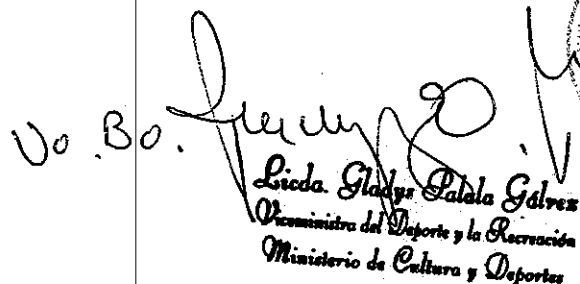 Vo. Bo.
Licda. Gladys Palala Gálvez
Viceministra del Deporte y la Recreación
Ministerio de Cultura y Deportes